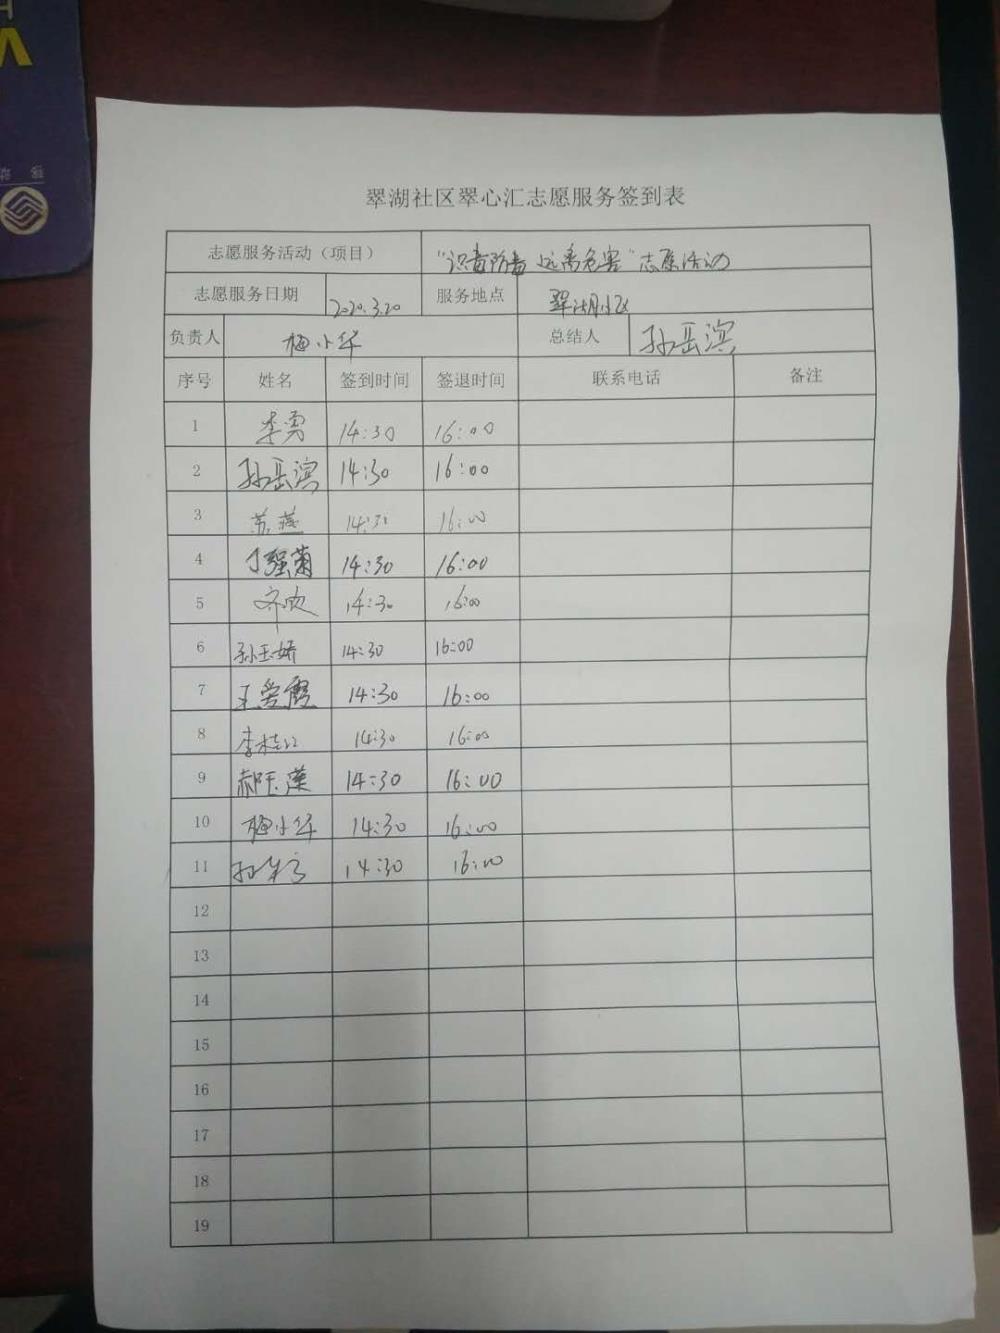 翠湖社区翠心汇志愿服务签到表
志愿服务活动（项目） “识毒防毒 远离危害”志愿活动
志愿服务日期 2020.3.20 服务地点 翠湖小区
负责人 梅小华 总结人 孙岳滨
序号 姓名 签到时间 签退时间 联系电话 备注
1 李勇 14:30 16:00
2 孙岳滨 14:30 16:00
3 苏燕 14:30 16:00
4 丁强菊 14:30 16:00
5 14:30 16:00
6 孙玉娇 14:30 16:00
7 王爱霞 14:30 16:00
8 李桂江 14:30 16:00
9 郝玉莲 14:30 16:00
10 梅小华 14:30 16:00
11 14:30 16:00
12
13
14
15
16
17
18
19